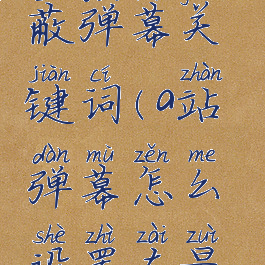 蔽弹幕关
jiàn cí zhàn
键词(a站
dàn mù zěn me
弹幕怎么
shè zhì zài zuì
设置在最